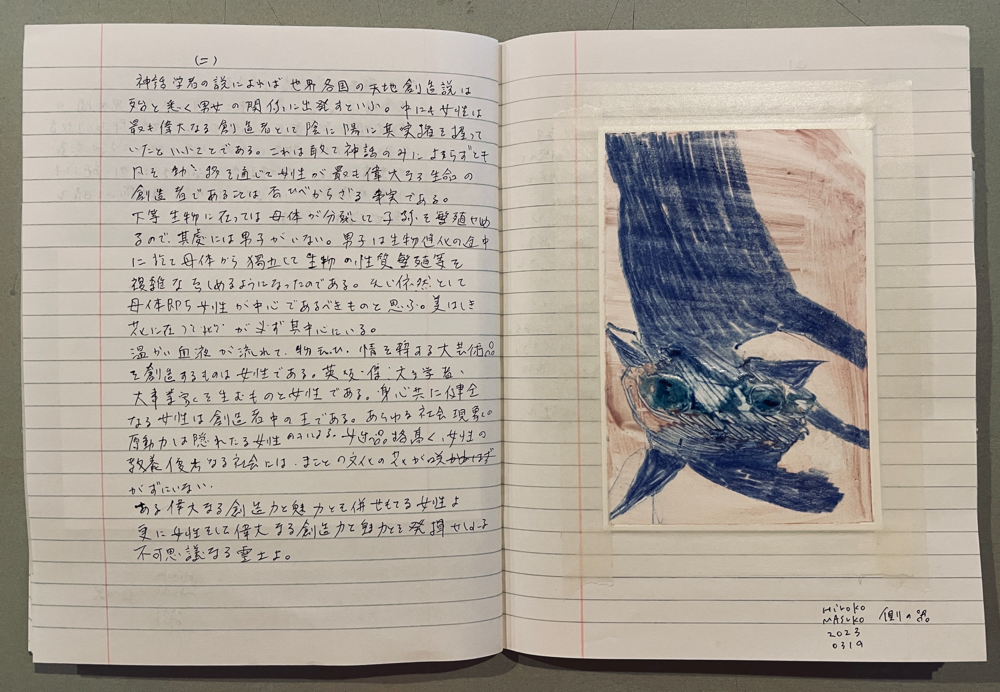 (二)
神話学者の説によれば世界各国の天地創造説は
殆と悉く男女の関係に出発すといふ。中にも女性は
最も偉大なる創造者として陰に陽に其実権を握って
いたといふことである。これは敢て神話のみによらずとも
凡そ動物を通じて女性が最も偉大なる生命の
創造者であることは否ひべからざる事実である。
下等生物に在っては母体が分裂して子孫を繁殖せしめ
るので、其處には男子がいない。男子は生物進化の途中
に於て母体から獨立して生物の性質繁殖等を
複雑ならしめるようになったのである。久し依然として
母体即ち女性が中心であるべきものと思ふ。美はしき
花に在っても が必ず其中心にいる。
温かい血液が流れて、物云ひ、情を解する大芸術品
を創造するものは女性である。英雄・偉 大文学者、
大事業家を生むものも女性である。身心共に健全
なる女性は創造者中の王である。あらゆる社会現象の
原動力は隠れたる女性 による。女性の品格高く、女性の
教養優秀なる社会には、まことの文化の花が咲
かずにいない。
ある偉大なる創造力と魅力とを併せもてる女性よ
更に女性をして偉大なる創造力と魅力とを発揮せしむる
不可思議なる霊土よ。
HiROKO
MASUKO
2023
0319
側の器